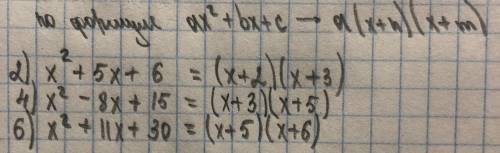 по формуле ax² + bx + c → a(x+n)(x+m)
2) x² + 5x + 6 = (x+2)(x+3)
4) x² - 8x + 15 = (x+3)(x+5)
6) x² + 11x + 30 = (x+5)(x+6)